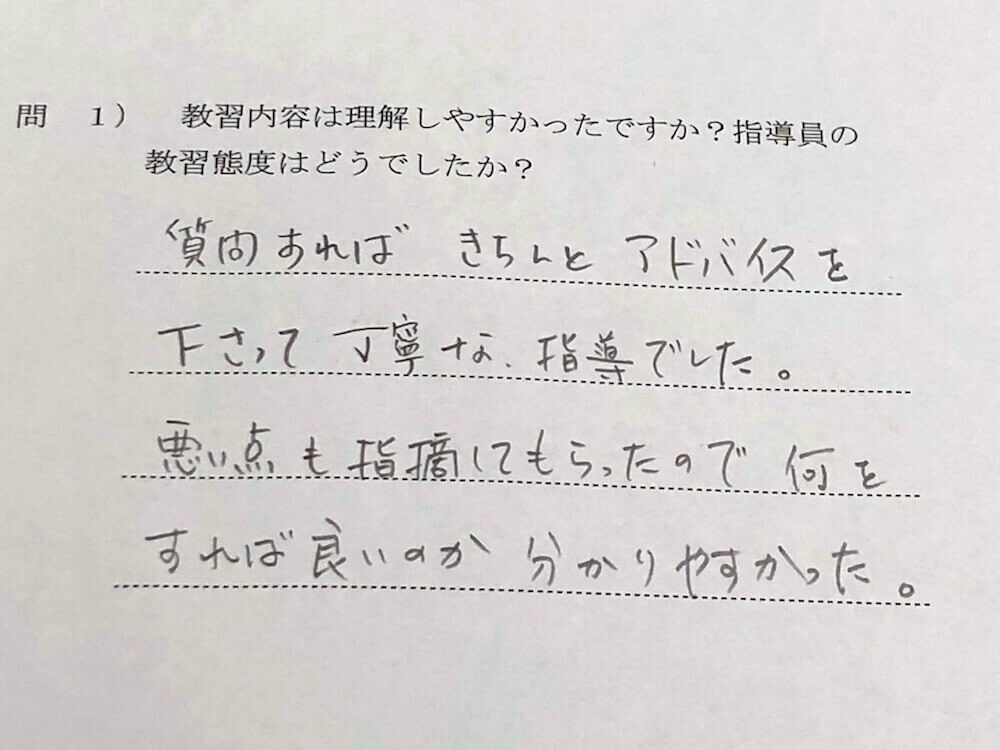 問　１）　教習内容は理解しやすかったですか？指導員の
教習態度はどうでしたか？
質問あれば きちんと アドバイスを
下さって 丁寧な、指導でした。
悪い点も指摘してもらったので 何を
すれば良いのか 分かりやすかった。